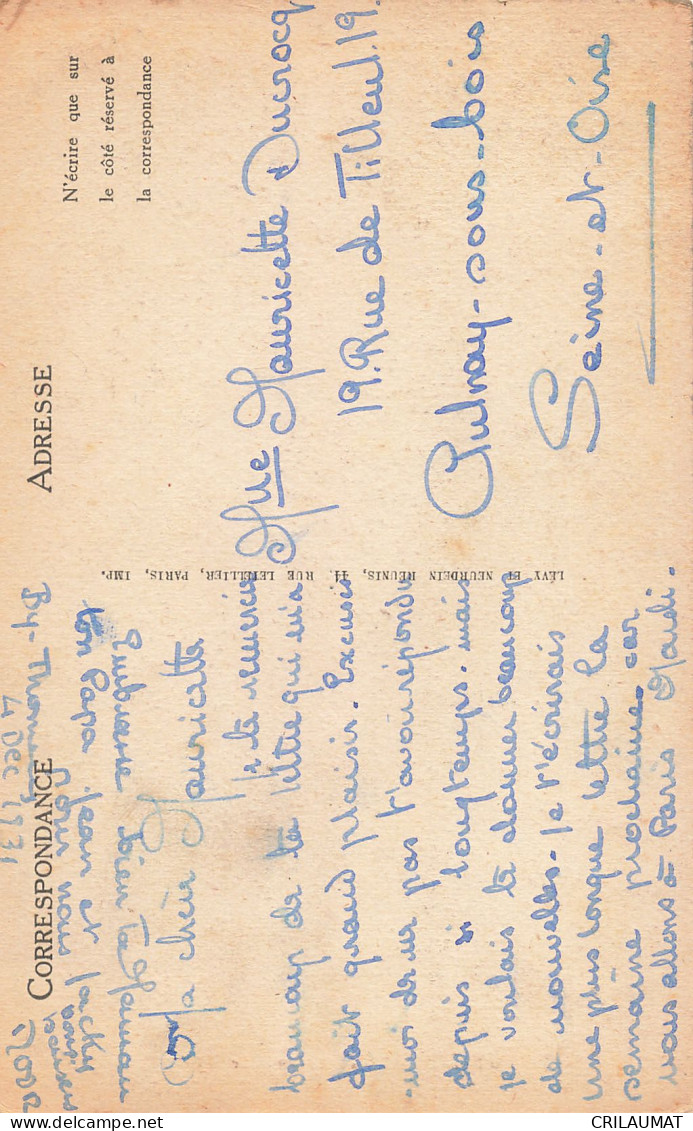 CORRESPONDANCE
ADRESSE
N'écrire que sur
le côté réservé à
la correspondance
By-Thomery
4 DEC 1931
Ma chère Mauricette
Je te remercie
beaucoup de ta lettre qui m'a
fait grand plaisir. Excuses
-moi de ne pas t'avoir répondu
depuis si longtemps. mais
je voulais te donner beaucoup
de nouvelles. Je t'écrirais
une plus longue lettre la
semaine prochaine car
nous allons à Paris Mardi.
Embrasse bien ta Maman
ton Papa Jean et Jacky
pour nous
LÉVY ET NEURDEIN RÉUNIS, 44, RUE LETELLIER, PARIS, IMP.
Mlle Mauricette Ducrocq
19. Rue de Tilleul. 19.
Aulnay-sous-bois
Seine-et-Oise
CRILAUMAT